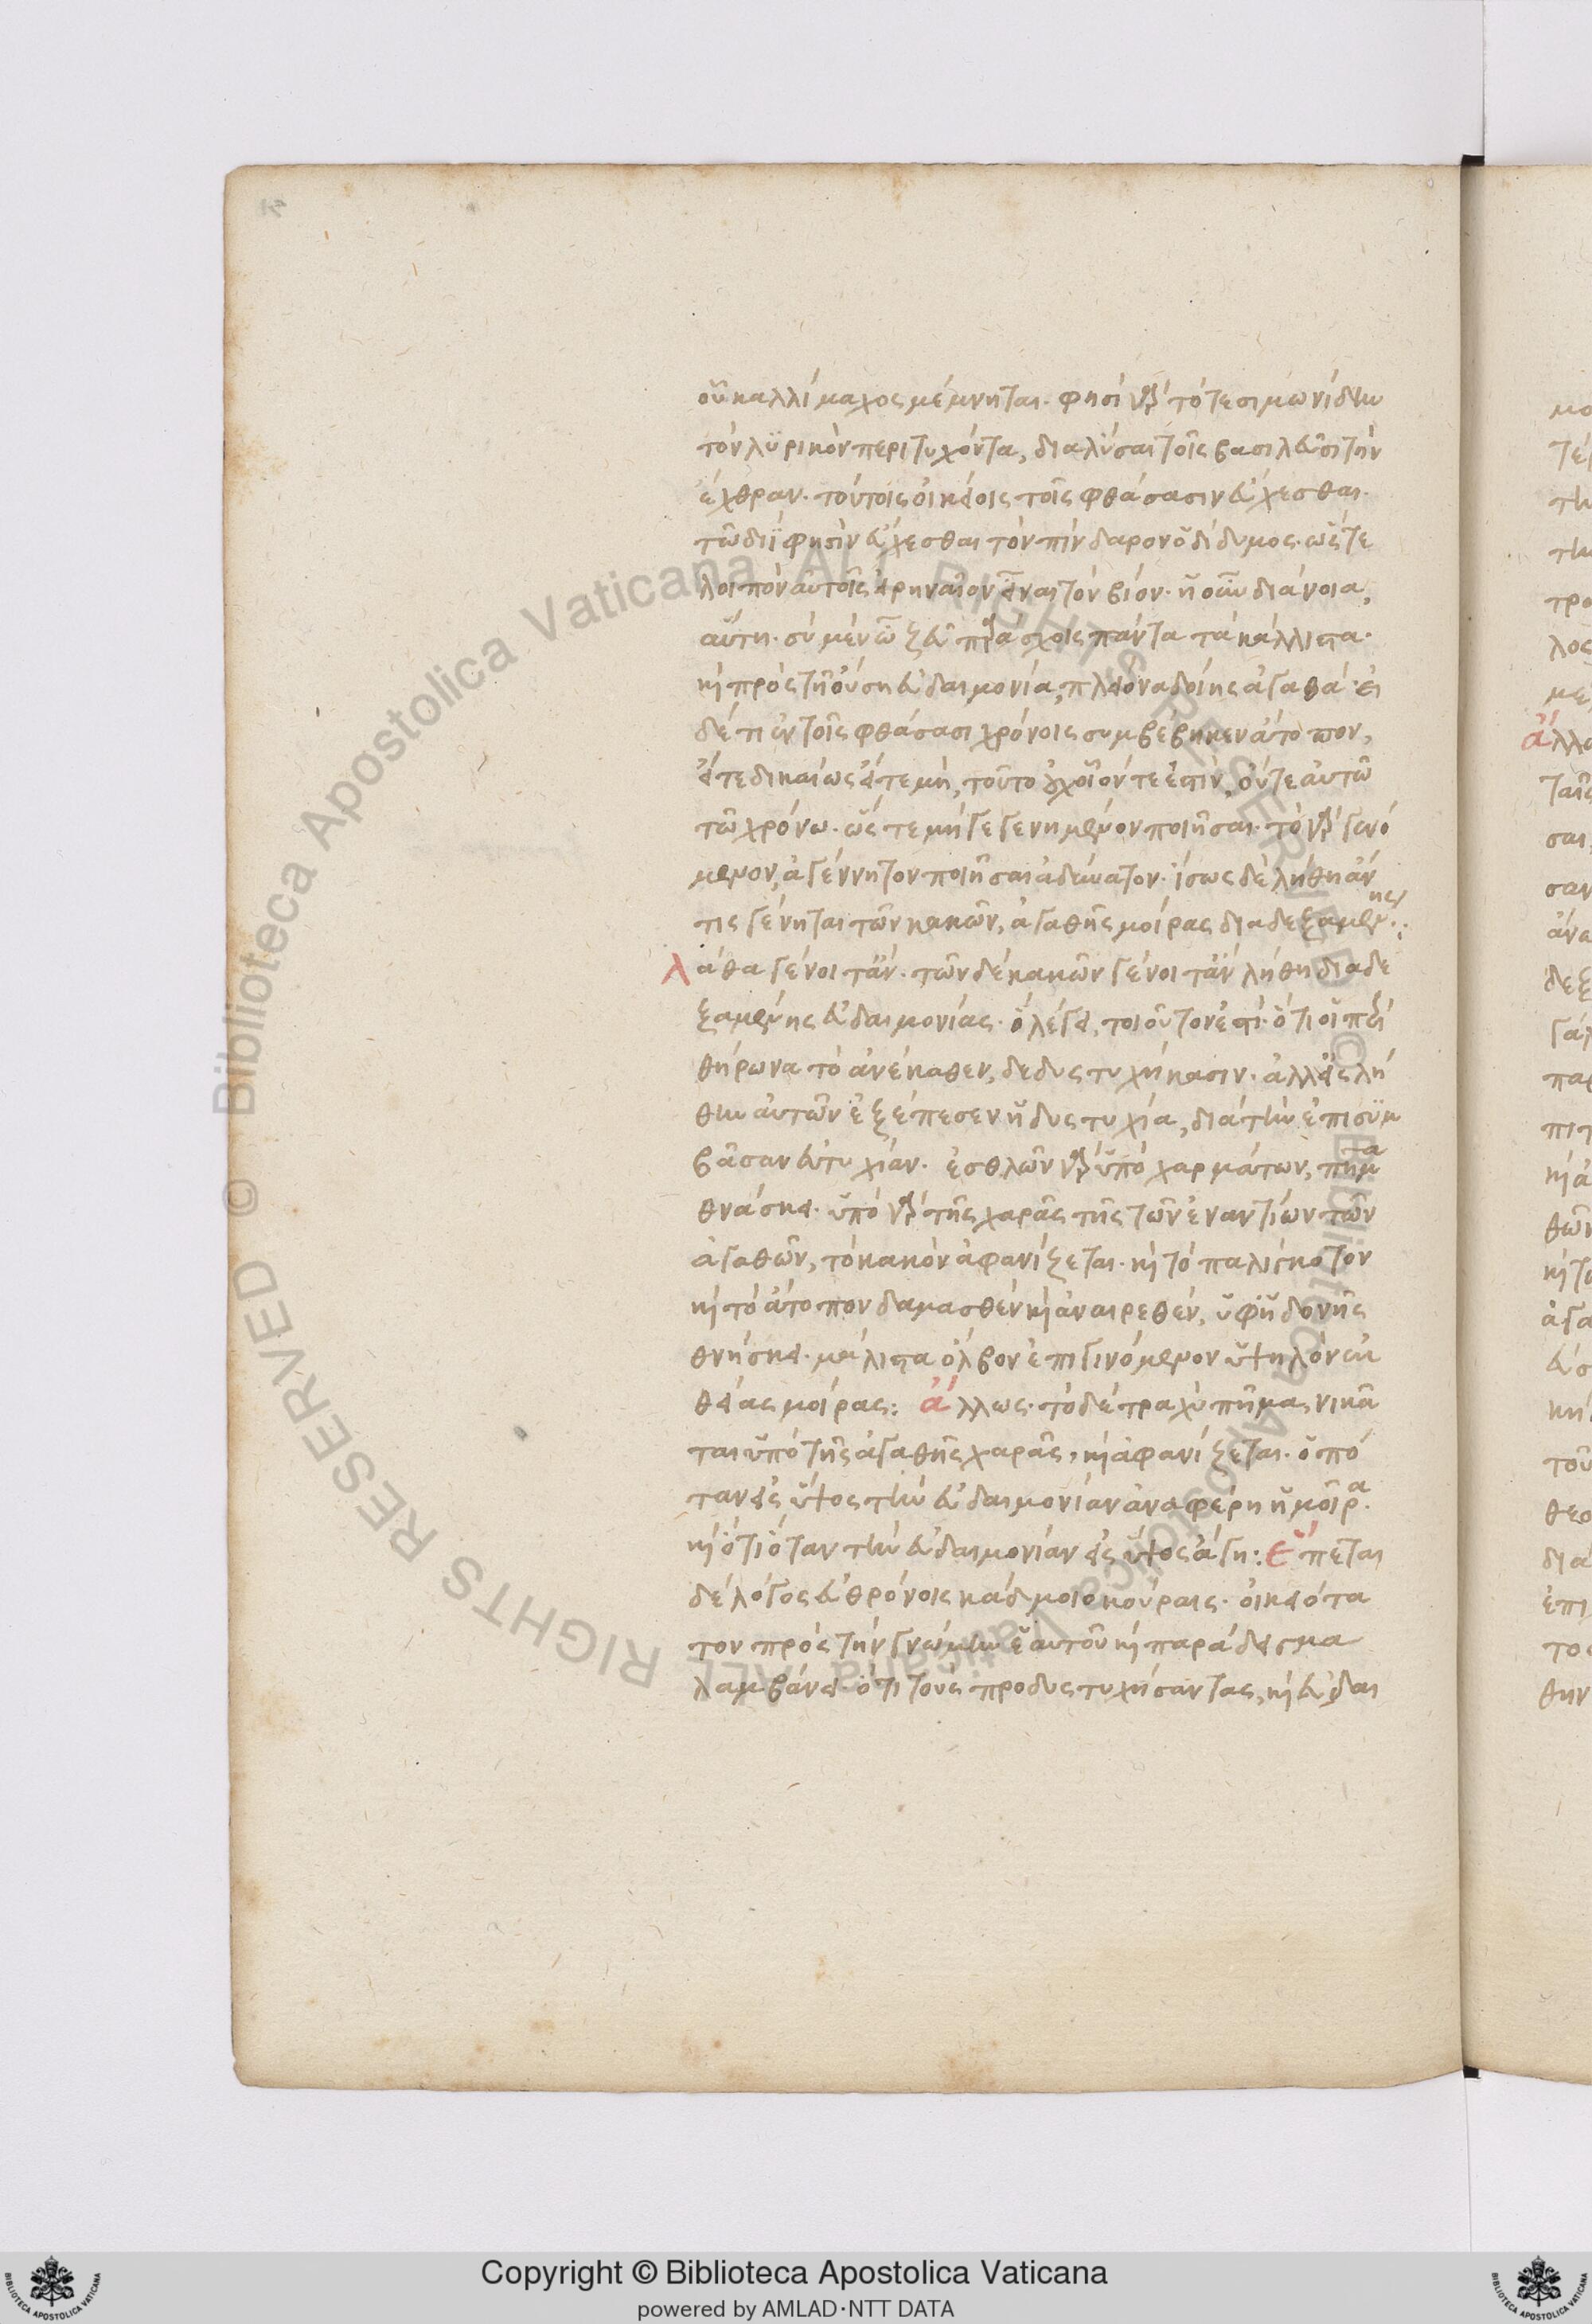 οὗ καλλίμαχος μέμνηται. φησὶ γὰρ τότε σιμωνίδην
τὸν λυρικὸν περιτυχόντα, διαλῦσαι τοῖς βασιλεῦσι τὴν
ἔχθραν. τούτοις οἰκείοις τοῖς φθάσασιν εὔχεσθαι.
τῷ διΐ φησὶν εὔχεσθαι τὸν πίνδαρον ὁ δίδυμος. ὥστε
λοιπὸν αὐτοῖς εἰρηναῖον εἶναι τὸν βίον. ἡ οὖν διάνοια,
αὕτη. σὺ μὲν ὦ ζεῦ παράσχοις πάντα τὰ κάλλιστα.
καὶ πρὸς τῇ οὔσῃ εὐδαιμονίᾳ, πλείονα δοίης ἀγαθά. εἰ
δέ τι ἐν τοῖς φθάσασι χρόνοις συμβέβηκεν ἄτοπον,
εἴτε δικαίως εἴτε μὴ, τοῦτο οὐχ οἷόν τέ ἐστιν, οὔτε αὐτῷ
τῷ χρόνῳ. ὥστε μὴ γεγενημένον ποιῆσαι. τὸ γὰρ γενό
μενον, ἀγέννητον ποιῆσαι ἀδύνατον. ἴσως δὲ λήθη ἄν
τις γένηται τῶν κακῶν, ἀγαθῆς μοίρας διαδεξαμένης:
λάθα γένοιτ' ἄν. τῶν δὲ κακῶν γένοιτ' ἂν λήθη διαδε
ξαμένης εὐδαιμονίας. ὃ λέγει, τοιοῦτον ἐστί. ὅτι οἱ περὶ
θήρωνα τὸ ἀνέκαθεν, δεδυστυχήκασιν. ἀλλ' εἰς λή
θην αὐτῶν ἐξέπεσεν ἡ δυστυχία, διὰ τὴν ἐπισυμ
βᾶσαν εὐτυχίαν. ἐσθλῶν γὰρ ὑπὸ χαρμάτων, πῆμα
θνάσκει. ὑπὸ γὰρ τῆς χαρᾶς τῆς τῶν ἐναντίων τῶν
ἀγαθῶν, τὸ κακὸν ἀφανίζεται. καὶ τὸ παλίγκοτον
καὶ τὸ ἄτοπον δαμασθὲν καὶ ἀναιρεθὲν, ὑφ' ἡδονῆς
θνήσκει. μάλιστα ὄλβον ἐπιγινόμενον ὑψηλὸν ἐκ
θείας μοίρας: ἄλλως. τὸ δὲ τραχὺ πῆμα, νικᾶ
ται ὑπὸ τῆς ἀγαθῆς χαρᾶς, καὶ ἀφανίζεται. ὁπό
ταν εἰς ὕψος τὴν εὐδαιμονίαν ἀναφέρῃ ἡ μοῖρα.
καὶ ὅτι ὅταν τὴν εὐδαιμονίαν εἰς ὕψος ἄγῃ: ἕπεται
δὲ λόγος εὐθρόνοις κάδμοιο κούραις. οἰκειότα
τον πρὸς τὴν γνώμην ἑαυτοῦ καὶ παράδειγμα
λαμβάνει. ὅτι τοὺς προδυστυχήσαντας, καὶ εὐδαι